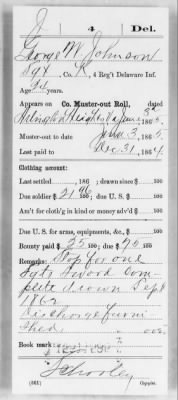 J 4 Del.
George W. Johnson
Sgt, Co. K, 4 Reg't Delaware Inf.
Age 24 years.
Appears on Co. Muster-out Roll, dated
Arlington Heights Va June 3, 1865.
Muster-out to date June 3, 1865.
Last paid to Dec 31, 1864.
Clothing account:
Last settled , 186 ; drawn since $ 100
Due soldier $ 21 96/100; due U. S. $ 100
Am't for cloth'g in kind or money adv'd $ 100
Due U. S. for arms, equipments, &c., $ 100
Bounty paid $ 25 100; due $ 75 100
Remarks: Stop for one
Sgts Sword Com-
plete drawn Sept
1862
Discharge furni
shed
Book mark:
Schooley
(861) Copyist.